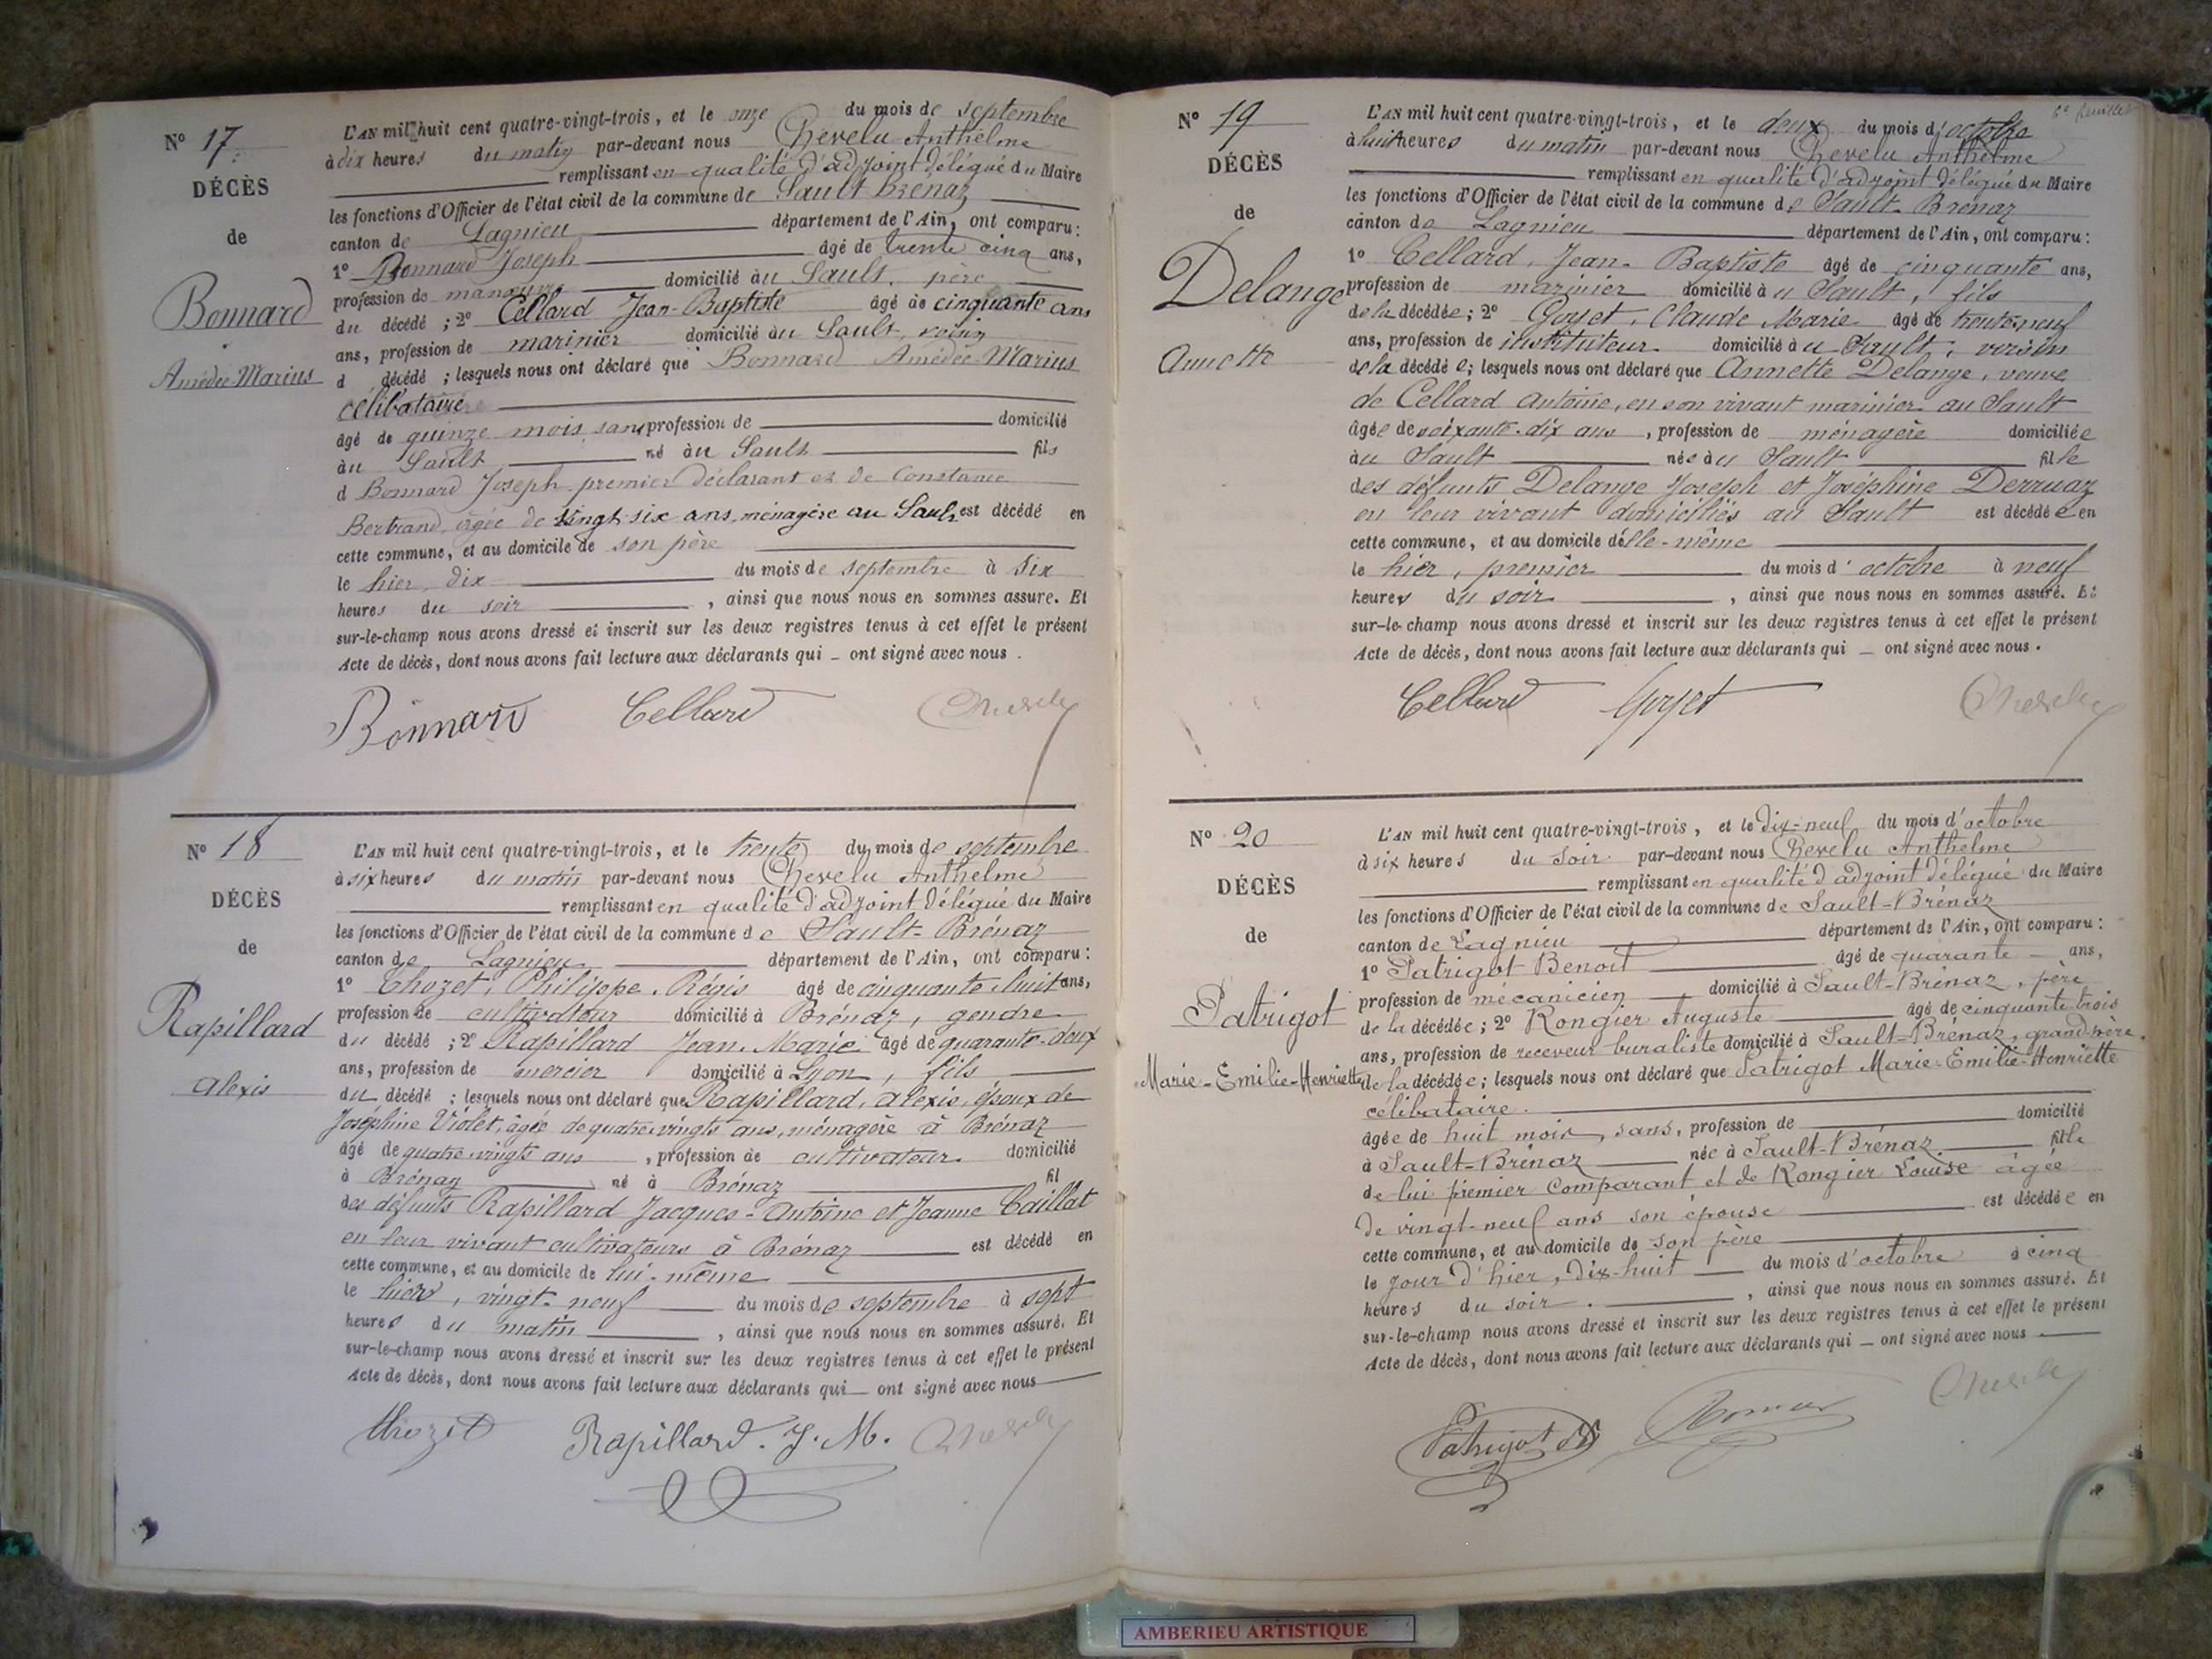 N° 17
DÉCÈS
de
Bonnard
Amédée Marius
L'AN mil huit cent quatre-vingt-trois, et le onze du mois de septembre
à dix heures du matin par-devant nous Chevelu Anthelme
remplissant en qualité d'adjoint délégué du Maire
les fonctions d'Officier de l'état civil de la commune de Sault Brénaz
canton de Lagnieu département de l'Ain, ont comparu :
1° Bonnard Joseph âgé de trente cinq ans,
profession de manœuvre domicilié au Sault, père
du décédé ; 2° Cellard Jean-Baptiste âgé de cinquante ans
ans, profession de marinier domicilié au Sault, voisin
d décédé ; lesquels nous ont déclaré que Bonnard Amédée-Marius
célibataire
âgé de quinze mois, sans profession de domicilié
au Sault né au Sault fils
d Bonnard Joseph premier déclarant et de Constance
Bertrand, âgée de vingt six ans, ménagère au Sault est décédé en
cette commune, et au domicile de son père
le hier, dix du mois de septembre à six
heures du soir, ainsi que nous nous en sommes assuré. Et
sur-le-champ nous avons dressé et inscrit sur les deux registres tenus à cet effet le présent
Acte de décès, dont nous avons fait lecture aux déclarants qui – ont signé avec nous.
Bonnard Cellard Chevelu
N° 18
DÉCÈS
de
Rapillard
Alexis
L'AN mil huit cent quatre-vingt-trois, et le trente du mois de septembre
à six heures du matin par-devant nous Chevelu Anthelme
remplissant en qualité d'adjoint délégué du Maire
les fonctions d'Officier de l'état civil de la commune de Sault-Brénaz
canton de Lagnieu département de l'Ain, ont comparu :
1° Chozet, Philippe, Régis âgé de cinquante huit ans,
profession de cultivateur domicilié à Brénaz, gendre
du décédé ; 2° Rapillard Jean-Marie âgé de quarante-deux
ans, profession de mercier domicilié à Lyon, fils
du décédé ; lesquels nous ont déclaré que Rapillard, Alexis, époux de
Joséphine Violet, âgée de quatre-vingts ans, ménagère à Brénaz
âgé de quatre-vingts ans, profession de cultivateur domicilié
à Brénaz né à Brénaz fil
des défunts Rapillard Jacques-Antoine et Jeanne Caillat
en leur vivant cultivateurs à Brénaz est décédé en
cette commune, et au domicile de lui-même
le hier, vingt-neuf du mois de septembre à sept
heures du matin, ainsi que nous nous en sommes assuré. Et
sur-le-champ nous avons dressé et inscrit sur les deux registres tenus à cet effet le présent
Acte de décès, dont nous avons fait lecture aux déclarants qui – ont signé avec nous
Chozet Rapillard. J. M. Chevelu
6e feuillet
N° 19
DÉCÈS
de
Delange
Annette
L'AN mil huit cent quatre-vingt-trois, et le deux du mois d'octobre
à huit heures du matin par-devant nous Chevelu Anthelme
remplissant en qualité d'adjoint délégué du Maire
les fonctions d'Officier de l'état civil de la commune de Sault-Brénaz
canton de Lagnieu département de l'Ain, ont comparu :
1° Cellard, Jean-Baptiste âgé de cinquante ans,
profession de marinier domicilié au Sault, fils
de la décédée ; 2° Goyet, Claude Marie âgé de trente-neuf
ans, profession de instituteur domicilié au Sault, voisin
de la décédée ; lesquels nous ont déclaré que Annette Delange, veuve
de Cellard Antoine, en son vivant marinier au Sault
âgée de soixante-dix ans, profession de ménagère domiciliée
au Sault née au Sault fille
des défunts Delange Joseph et Joséphine Derruaz
en leur vivant domiciliés au Sault est décédée en
cette commune, et au domicile d'elle-même
le hier, premier du mois d'octobre à neuf
heures du soir, ainsi que nous nous en sommes assuré. Et
sur-le-champ nous avons dressé et inscrit sur les deux registres tenus à cet effet le présent
Acte de décès, dont nous avons fait lecture aux déclarants qui – ont signé avec nous.
Cellard Goyet Chevelu
N° 20
DÉCÈS
de
Patrigot
Marie-Emilie-Henriette
L'AN mil huit cent quatre-vingt-trois, et le dix-neuf du mois d'octobre
à six heures du soir par-devant nous Chevelu Anthelme
remplissant en qualité d'adjoint délégué du Maire
les fonctions d'Officier de l'état civil de la commune de Sault-Brénaz
canton de Lagnieu département de l'Ain, ont comparu :
1° Patrigot Benoit âgé de quarante ans,
profession de mécanicien domicilié à Sault-Brénaz, père
de la décédée ; 2° Rongier Auguste âgé de cinquante-trois
ans, profession de receveur buraliste domicilié à Sault-Brénaz, grand-père,
de la décédée ; lesquels nous ont déclaré que Patrigot Marie-Emilie-Henriette
célibataire.
âgée de huit mois, sans, profession de domicilié
à Sault-Brénaz née à Sault-Brénaz fille
de lui premier comparant et de Rongier Louise âgée
de vingt-neuf ans son épouse est décédée en
cette commune, et au domicile de son père
le jour d'hier, dix-huit du mois d'octobre à cinq
heures du soir., ainsi que nous nous en sommes assuré. Et
sur-le-champ nous avons dressé et inscrit sur les deux registres tenus à cet effet le présent
Acte de décès, dont nous avons fait lecture aux déclarants qui – ont signé avec nous
Patrigot Chevelu
AMBERIEU ARTISTIQUE